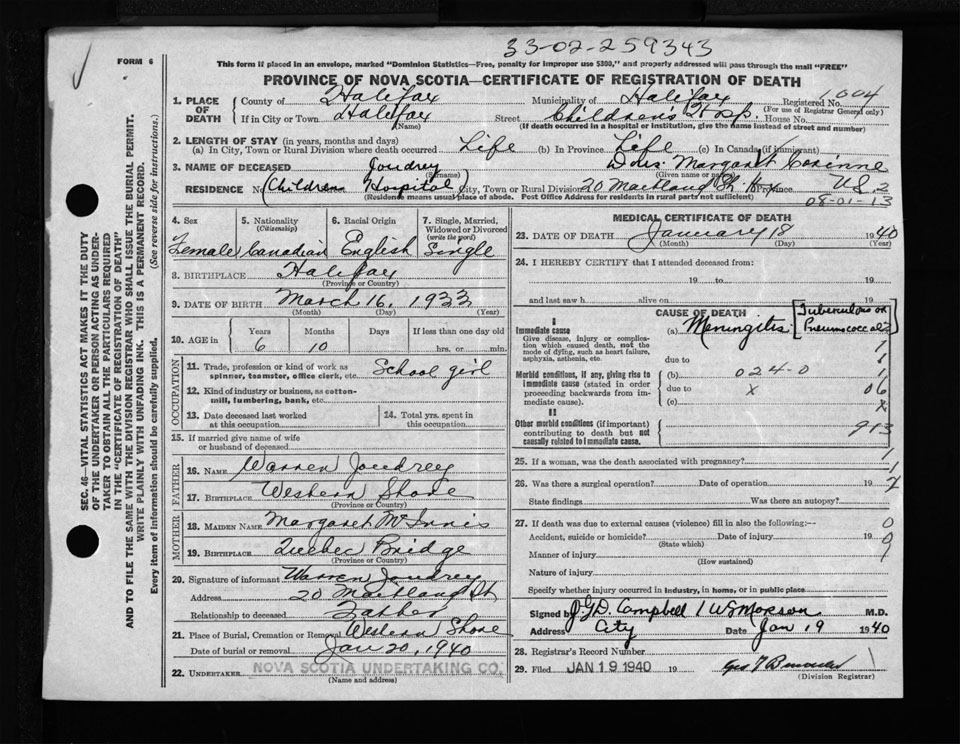 33-02-259343
FORM 6
This form if placed in an envelope, marked "Dominion Statistics—Free, penalty for improper use $300," and properly addressed will pass through the mail "FREE"
PROVINCE OF NOVA SCOTIA—CERTIFICATE OF REGISTRATION OF DEATH
SEC. 46—VITAL STATISTICS ACT MAKES IT THE DUTY
OF THE UNDERTAKER OR PERSON ACTING AS UNDER-
TAKER TO OBTAIN ALL THE PARTICULARS REQUIRED
IN THE "CERTIFICATE OF REGISTRATION OF DEATH"
AND TO FILE THE SAME WITH THE DIVISION REGISTRAR WHO SHALL ISSUE THE BURIAL PERMIT.
WRITE PLAINLY WITH UNFADING INK. THIS IS A PERMANENT RECORD.
Every item of information should be carefully supplied. (See reverse side for instructions.)
1. PLACE OF DEATH County of Halifax Municipality of Halifax Registered No. 1004
(For use of Registrar General only)
If in City or Town Halifax Street Children's Hosp. House No.
(Name) (If death occurred in a hospital or institution, give the name instead of street and number)
2. LENGTH OF STAY (in years, months and days)
(a) In City, Town or Rural Division where death occurred Life (b) In Province Life (c) In Canada (if immigrant)
3. NAME OF DECEASED Joudrey Doris Margaret Corinne
(Surname) (Given name or names)
RESIDENCE No. (Children's Hospital) City, Town or Rural Division 20 Maitland St. Hfx Province N.S. 2
(Residence means usual place of abode. Post Office Address for residents in rural parts not sufficient)
08-01-13
4. Sex 5. Nationality (Citizenship) 6. Racial Origin 7. Single, Married, Widowed or Divorced (write the word)
Female Canadian English Single
8. BIRTHPLACE Halifax
(Province or Country)
9. DATE OF BIRTH March 16, 1933
(Month) (Day) (Year)
10. AGE in Years Months Days If less than one day old
6 10 hrs. or min.
OCCUPATION
11. Trade, profession or kind of work as spinner, teamster, office clerk, etc. School girl
12. Kind of industry or business, as cotton-mill, lumbering, bank, etc.
13. Date deceased last worked at this occupation 14. Total yrs. spent in this occupation
15. If married give name of wife or husband of deceased
FATHER
16. NAME Warren Joudrey
17. BIRTHPLACE Western Shore
(Province or Country)
MOTHER
18. MAIDEN NAME Margaret McInnis
19. BIRTHPLACE Quebec Bridge
(Province or Country)
20. Signature of informant Warren Joudrey
Address 20 Maitland St
Relationship to deceased Father
21. Place of Burial, Cremation or Removal Western Shore
Date of burial or removal Jan 20, 1940
22. UNDERTAKER NOVA SCOTIA UNDERTAKING CO.
(Name and address)
MEDICAL CERTIFICATE OF DEATH
23. DATE OF DEATH January 18 1940
(Month) (Day) (Year)
24. I HEREBY CERTIFY that I attended deceased from:
19 to 19
and last saw h alive on 19
CAUSE OF DEATH
I
Immediate cause (a) Meningitis [Tuberculous or Pneumococcal]
Give disease, injury or complication which caused death, not the mode of dying, such as heart failure, asphyxia, asthenia, etc.
due to
Morbid conditions, if any, giving rise to immediate cause (stated in order proceeding backwards from immediate cause).
(b) 024-0
due to x 06
(c) x
II
Other morbid conditions (if important) contributing to death but not causally related to immediate cause.
913
25. If a woman, was the death associated with pregnancy?
26. Was there a surgical operation? Date of operation 19
State findings Was there an autopsy?
27. If death was due to external causes (violence) fill in also the following:—
Accident, suicide or homicide? Date of injury 19
(State which)
Manner of injury
(How sustained)
Nature of injury
Specify whether injury occurred in industry, in home, or in public place
Signed by J.G.D. Campbell / W.S. Morson M.D.
Address City Date Jan 19 1940
28. Registrar's Record Number
29. Filed JAN 19 1940 19
(Division Registrar)